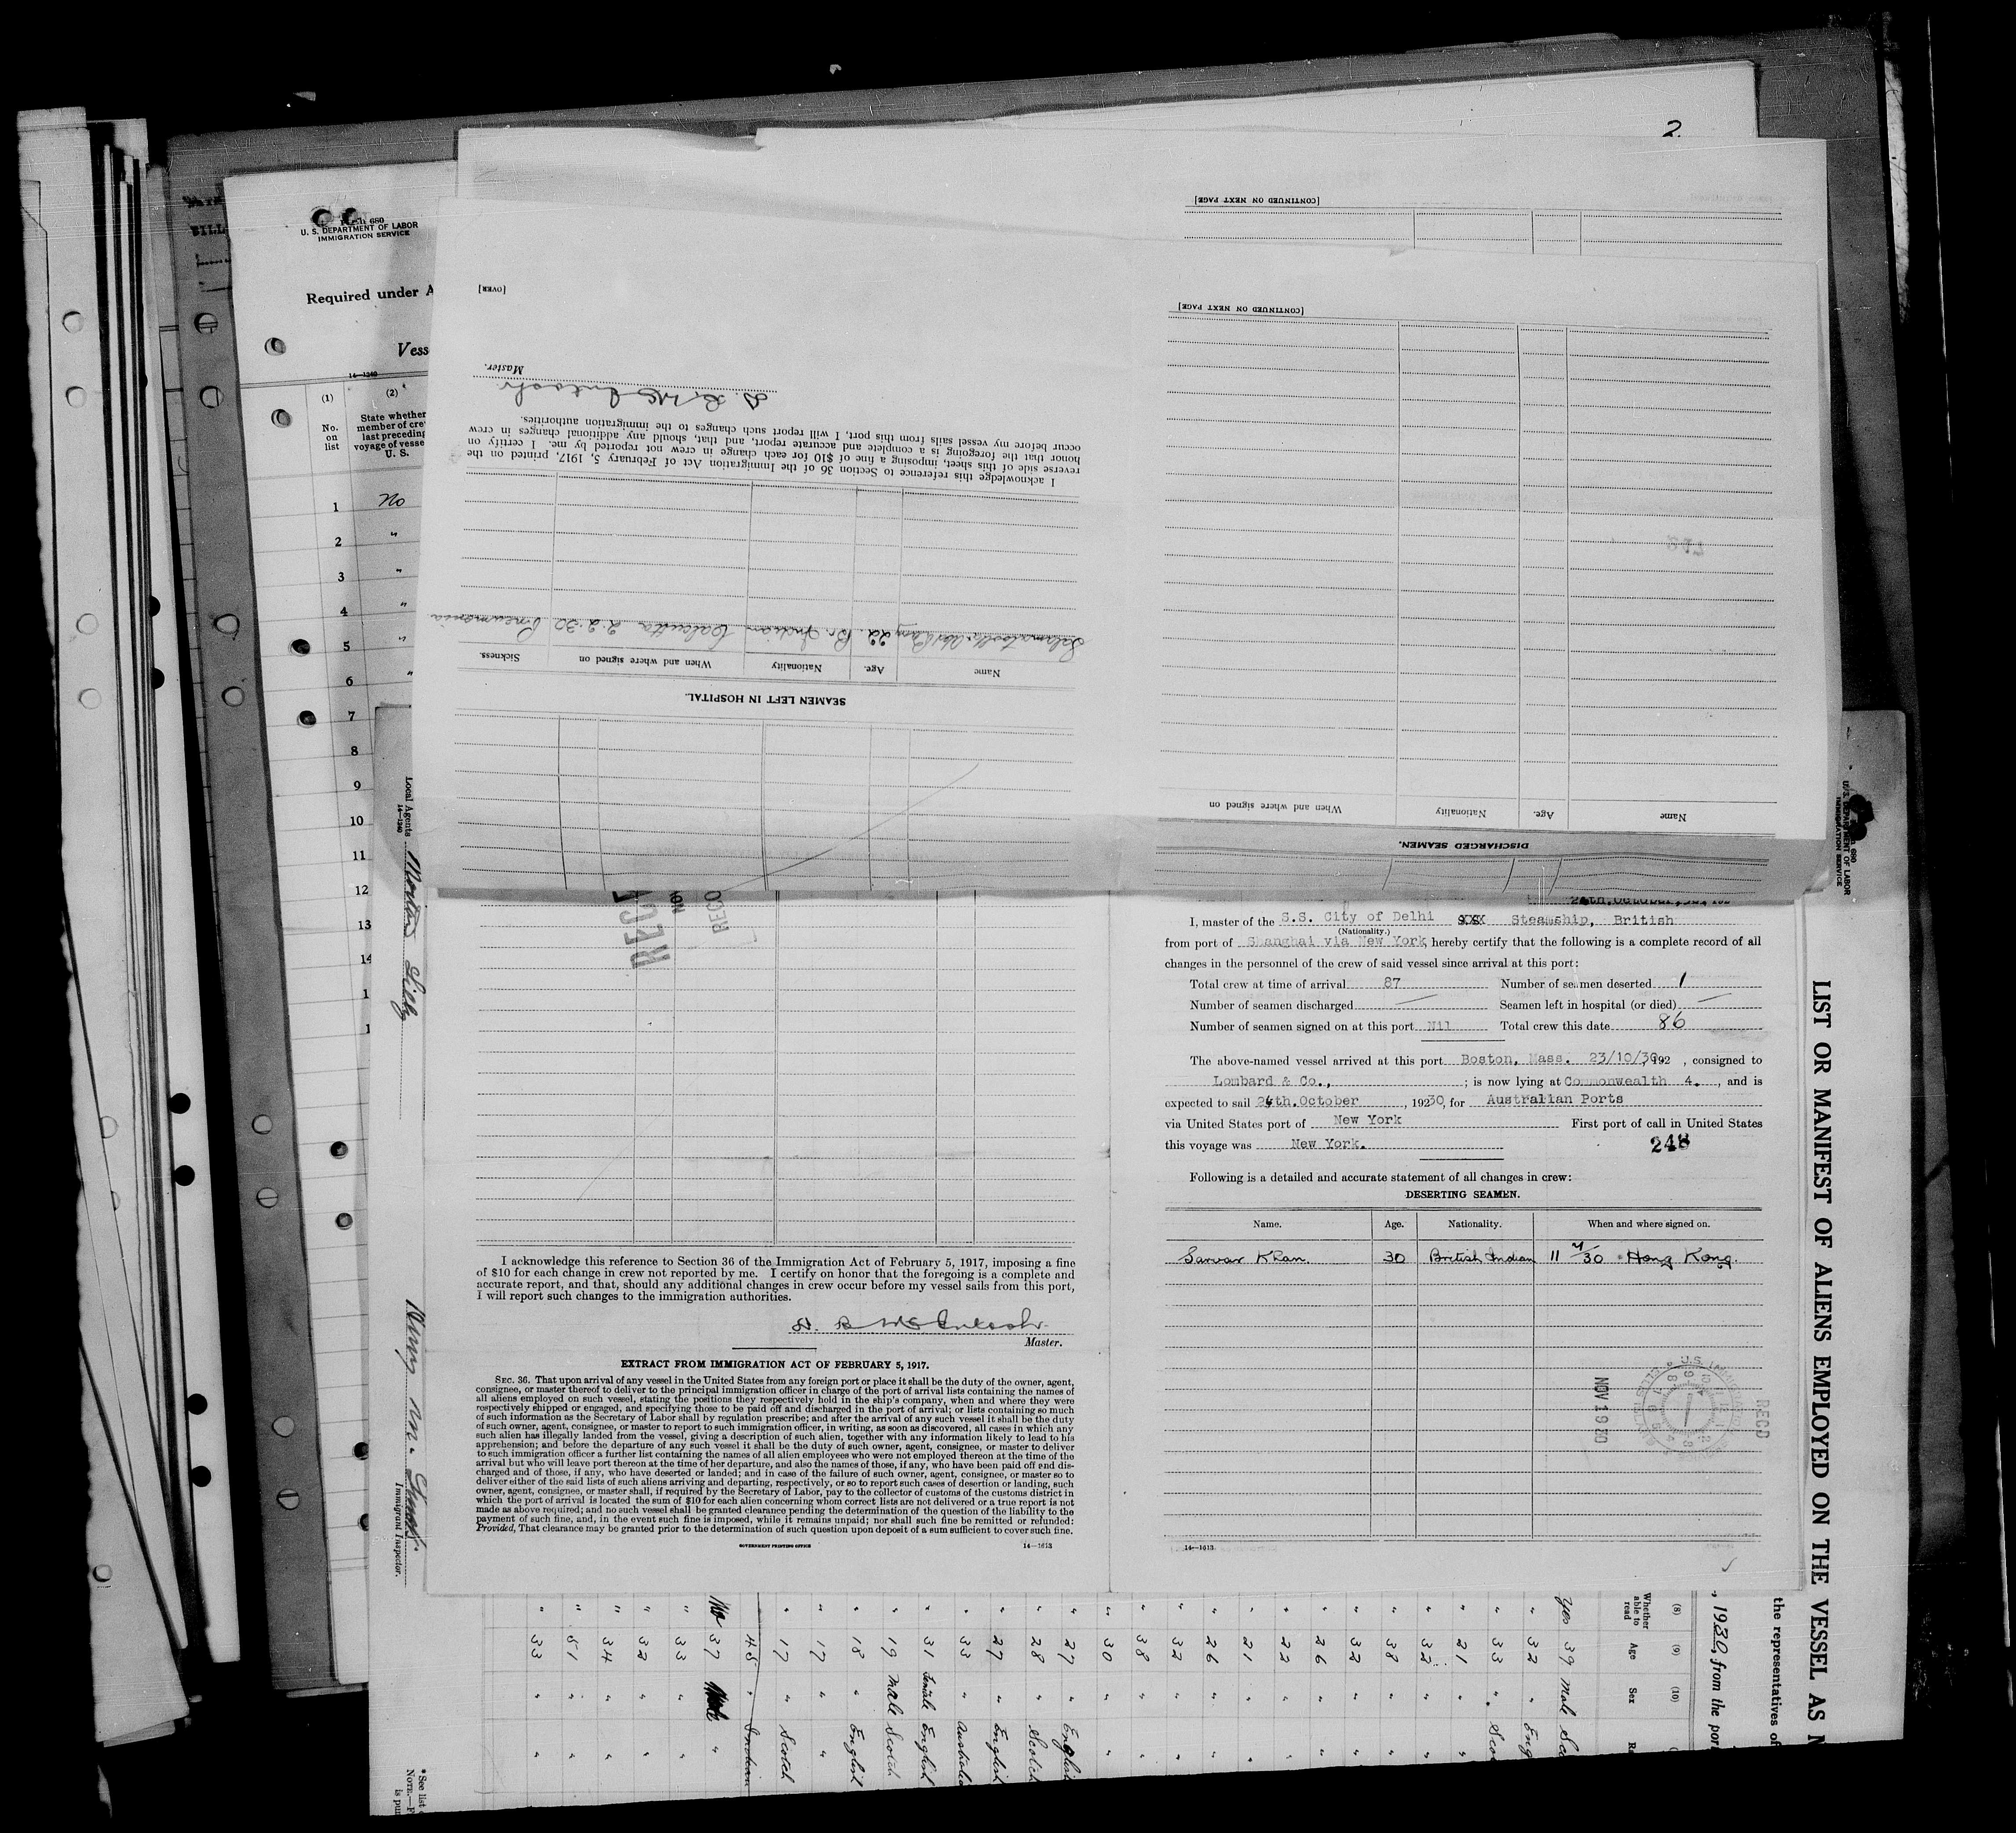 2.
Form 680
U. S. DEPARTMENT OF LABOR
IMMIGRATION SERVICE
Required under A
Vess
14—1240
(1)
(2)
No.
on
list
State whether
member of cre
last preceding
voyage of vesse
U. S.
1 No
2 "
3 "
4 "
5 "
6 "
7
8
9
10
11
12
13
14
1
1
[CONTINUED ON NEXT PAGE]
[OVER]
Master.
I acknowledge this reference to Section 36 of the Immigration Act of February 5, 1917, printed on the
reverse side of this sheet, imposing a fine of $10 for each change in crew not reported by me. I certify on
honor that the foregoing is a complete and accurate report, and that, should any additional changes in crew
occur before my vessel sails from this port, I will report such changes to the immigration authorities.
SEAMEN LEFT IN HOSPITAL.
Name Age. Nationality When and where signed on Sickness.
22 Br. Indian Calcutta 2.2.30 Pneumonia
[CONTINUED ON NEXT PAGE]
DISCHARGED SEAMEN.
Name Age. Nationality When and where signed on
RECD
I, master of the S.S. City of Delhi XXX Steamship, British
(Nationality.)
from port of Shanghai via New York hereby certify that the following is a complete record of all
changes in the personnel of the crew of said vessel since arrival at this port:
Total crew at time of arrival 87 Number of seamen deserted 1
Number of seamen discharged — Seamen left in hospital (or died) —
Number of seamen signed on at this port Nil Total crew this date 86
The above-named vessel arrived at this port Boston, Mass. 23/10/30, 192 , consigned to
Lombard & Co., ; is now lying at Commonwealth 4. , and is
expected to sail 24th.October , 1930, for Australian Ports
via United States port of New York First port of call in United States
this voyage was New York.
248
Following is a detailed and accurate statement of all changes in crew:
DESERTING SEAMEN.
Name. Age. Nationality. When and where signed on.
Sarwar Khan. 30 British Indian 11 4/30 Hong Kong.
NOV 1 9 30
RECD
U.S. IMMIGRATION
14—1613
I acknowledge this reference to Section 36 of the Immigration Act of February 5, 1917, imposing a fine
of $10 for each change in crew not reported by me. I certify on honor that the foregoing is a complete and
accurate report, and that, should any additional changes in crew occur before my vessel sails from this port,
I will report such changes to the immigration authorities.
Master.
EXTRACT FROM IMMIGRATION ACT OF FEBRUARY 5, 1917.
SEC. 36. That upon arrival of any vessel in the United States from any foreign port or place it shall be the duty of the owner, agent,
consignee, or master thereof to deliver to the principal immigration officer in charge of the port of arrival lists containing the names of
all aliens employed on such vessel, stating the positions they respectively hold in the ship's company, when and where they were
respectively shipped or engaged, and specifying those to be paid off and discharged in the port of arrival; or lists containing so much
of such information as the Secretary of Labor shall by regulation prescribe; and after the arrival of any such vessel it shall be the duty
of such owner, agent, consignee, or master to report to such immigration officer, in writing, as soon as discovered, all cases in which any
such alien has illegally landed from the vessel, giving a description of such alien, together with any information likely to lead to his
apprehension; and before the departure of any such vessel it shall be the duty of such owner, agent, consignee, or master to deliver
to such immigration officer a further list containing the names of all alien employees who were not employed thereon at the time of the
arrival but who will leave port thereon at the time of her departure, and also the names of those, if any, who have been paid off and dis-
charged and of those, if any, who have deserted or landed; and in case of the failure of such owner, agent, consignee, or master so to
deliver either of the said lists of such aliens arriving and departing, respectively, or so to report such cases of desertion or landing, such
owner, agent, consignee, or master shall, if required by the Secretary of Labor, pay to the collector of customs of the customs district in
which the port of arrival is located the sum of $10 for each alien concerning whom correct lists are not delivered or a true report is not
made as above required; and no such vessel shall be granted clearance pending the determination of the question of the liability to the
payment of such fine, and, in the event such fine is imposed, while it remains unpaid; nor shall such fine be remitted or refunded:
Provided, That clearance may be granted prior to the determination of such question upon deposit of a sum sufficient to cover such fine.
GOVERNMENT PRINTING OFFICE
14—1613
Local Agents
14—1240
Immigrant Inspector.
*See list
NOTE.—F
is pu
U. S. DEPARTMENT OF LABOR
IMMIGRATION SERVICE
LIST OR MANIFEST OF ALIENS EMPLOYED ON THE VESSEL AS M
the representatives of
, 1930, from the por
(8) (9) (10)
Whether able to read Age Sex R
Yes 39 Male Sco
" 32 " Eng
" 33 " Sco
" 21 "
" 32 "
" 38 "
" 32 "
" 26 "
" 22 "
" 21 "
" 26 "
" 32 "
" 38 "
" 30 "
" 27 " English
" 28 " Scotch
" 27 " English
" 33 " Australia
" 31 Female English
" 19 Male Scotch
" 18 " English
" 17 "
" 17 " Scotch
45 " Indian
No 37 Male "
" 33 "
" 32 "
" 34 "
" 51 "
" 33 "